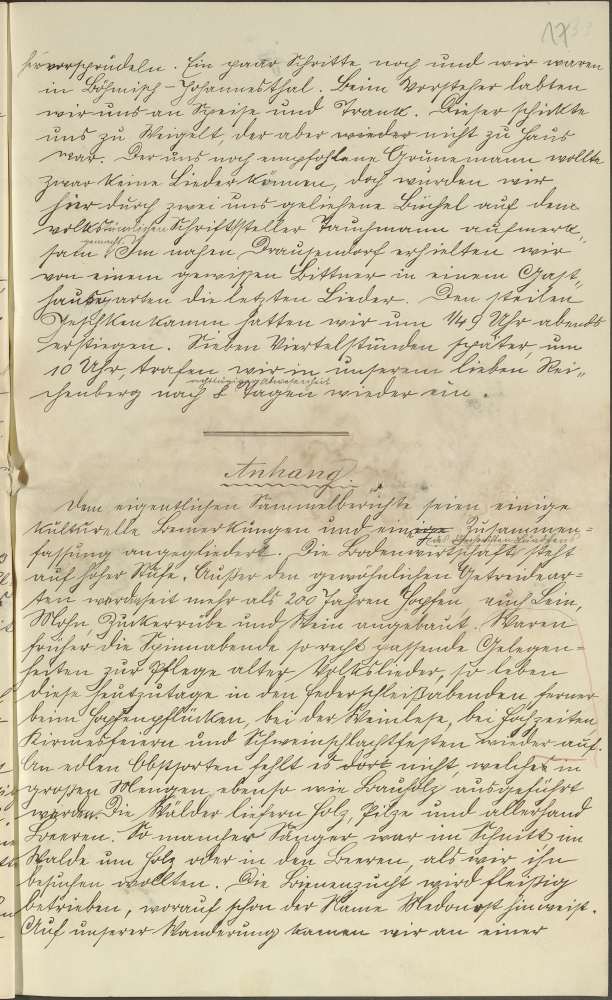 17 33
hervorsprudeln. Ein paar Schritte noch und wir waren
in Böhmisch-Johannesthal. Beim Vorsteher labten
wir uns an Speise und Trank. Dieser schickte
uns zu Weigelt, der aber wieder nicht zu Haus
war. Der uns noch empfohlene Grünemann wollte
zwar keine Lieder können, doch wurden wir
hier durch zwei uns geliehene Büchel auf den
volkstümlichen Schriftsteller Tauchmann aufmerk„
gemacht.
sam Im nahen Drausendorf erhielten wir
von einem gewissen Bittner in einem Gast„
hausgarten die letzten Lieder. Den steilen
Jeschkenkamm hatten wir um 1/4 9 Uhr abends
erstiegen. Sieben Viertelstunden später, um
10 Uhr, trafen wir in unserem lieben Rei„
chenberg nach 8 Tagen wieder ein.
Anhang
Dem eigentlichen Sammelberichte seien einige
kulturelle Bemerkungen und eine Zusammen=
fassung angegliedert. Die Bodenwirtschaft steht
auf hoher Stufe. Außer den gewöhnlichen Getreidear=
ten werden seit mehr als 200 Jahren Hopfen, auch Lein,
Mohn, Zuckerrübe und Wein angebaut. Waren
früher die Spinnabende so recht passende Gelegen=
heiten zur Pflege alter Volkslieder, so leben
diese heutzutage in den Federschleißabenden, ferner
beim Hopfenpflücken, bei der Weinlese, bei Hochzeiten
Kirmesfeiern und Schweinschlachtfesten wieder auf.
An edlen Obstsorten fehlt es dort nicht, welches in
großen Mengen, ebenso wie Bauholz ausgeführt
werden. Die Wälder liefern Holz, Pilze und allerhand
Beeren. So mancher Sänger war im Schnitt im
Walde um Holz oder in den Beeren, als wir ihn
besuchen wollten. Die Bienenzucht wird fleißig
betrieben, worauf schon der Name Medonost hinweist.
Auf unserer Wanderung kamen wir an einer